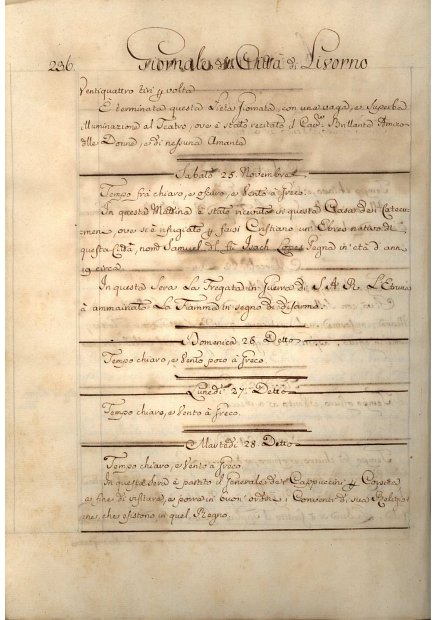 236. Giornale della Città di Livorno
Ventiquattro tiri p volta
È terminata questa lieta giornata, con una vaga, e Superba
illuminazione al Teatro, ove è stato recitato il Cav.re Brillante Amico
delle Donne, e di nessuna Amante
Sabato 25. Novembre
Tempo frà chiaro, e oscuro, e Vento à freco.
In questa Mattina è stato ricevuto in questa Casa de i Catecu-
meni, ove si è rifugiato p farsi Cristiano un Ebreo nativo di
questa Città, nom.o Samuel del fù Isach Lopes Pegna in età d'anni
19 circa.
In questa Sera La Fregata in Guerra di S.A.R. L'Etruria
à ammainato La Fiamma in segno di disarmo.
Domenica 26. Detto
Tempo chiaro, e Vento poco à freco
Lunedì 27. Detto
Tempo chiaro, e Vento à freco
Martedì 28. Detto
Tempo chiaro, e Vento à freco
In questa Sera è partito il Generale de i Cappuccini p Corsica
a fine di visitare, e porre in buon'ordine i Conventi di sua Religio-
ne, che esistono in quel Regno.